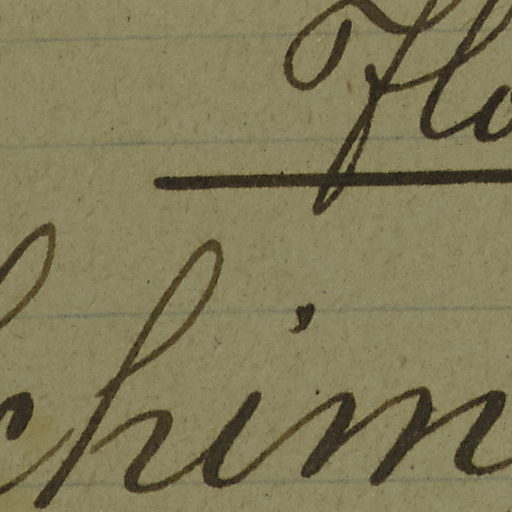 Flo
chim